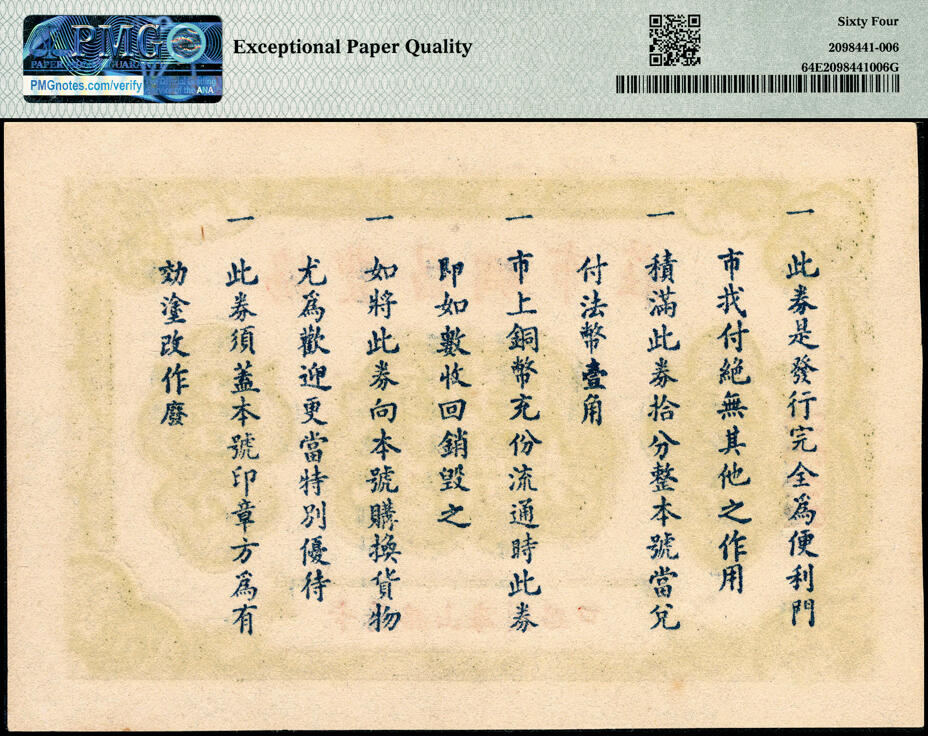 PMG
PAPER MONEY GUARANTY
PMGnotes.com/verify
ANA
Exceptional Paper Quality
Sixty Four
2098441-006
64E2098441006G
一 此券是發行完全爲便利門
市找付絕無其他之作用
一 積滿此券拾分整本號當兌
付法幣壹角
一 市上銅幣充份流通時此券
即如數收回銷毀之
一 如將此券向本號購換貨物
尤爲歡迎更當特別優待
一 此券須蓋本號印章方爲有
効塗改作廢